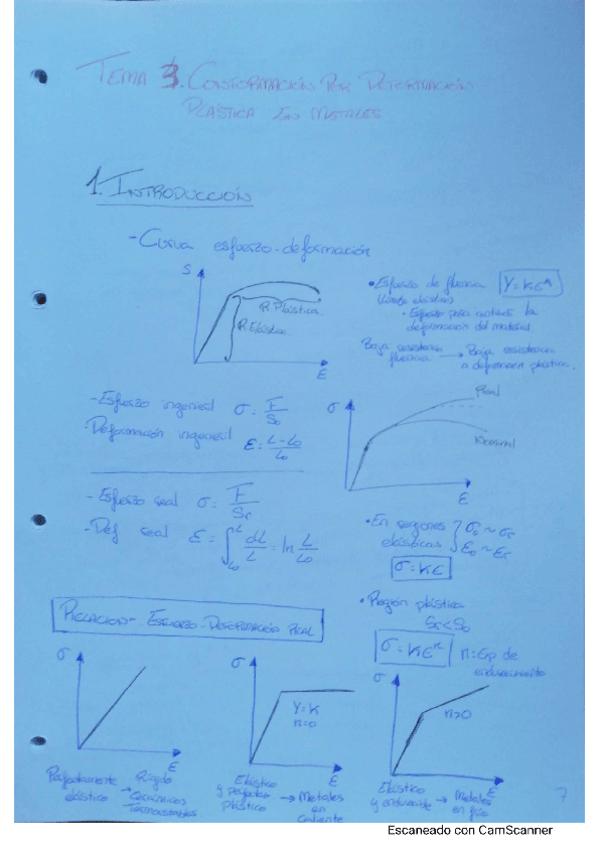 TEMA 3. CONFORMACIÓN POR DEFORMACIÓN
PLÁSTICA EN METALES
1. INTRODUCCIÓN
- Curva esfuerzo-deformación
S
R. Plástica
R. Elástica
ε
• Esfuerzo de fluencia Y=Kεⁿ
límite elástico
• Esfuerzo para continuar la
deformación del material
Baja resistencia
fluencia → Baja resistencia
a deformación plástica.
- Esfuerzo ingenieril σ = F/S₀
- Deformación ingenieril ε = L-L₀/L₀
σ
Real
Nominal
ε
- Esfuerzo real σ = F/Sr
- Def real ε = ∫ dL/L = ln L/L₀
• En regiones
elásticas } σ₀ ~ σr
ε₀ ~ εr
σ = Kε
• Región plástica
Sr < S₀
σ = Kεⁿ n: Exp de
endurecimiento
RELACIÓN - ESFUERZO-DEFORMACIÓN REAL
σ
ε
Perfectamente
elástico → Rígido
Cerámicos
Termoestables
σ
Y=K
n=0
ε
Elástico
y perfecto
plástico → Metales
en
caliente
σ
n>0
ε
Elástico
y endurecible → Metales
en frío
7
Escaneado con CamScanner